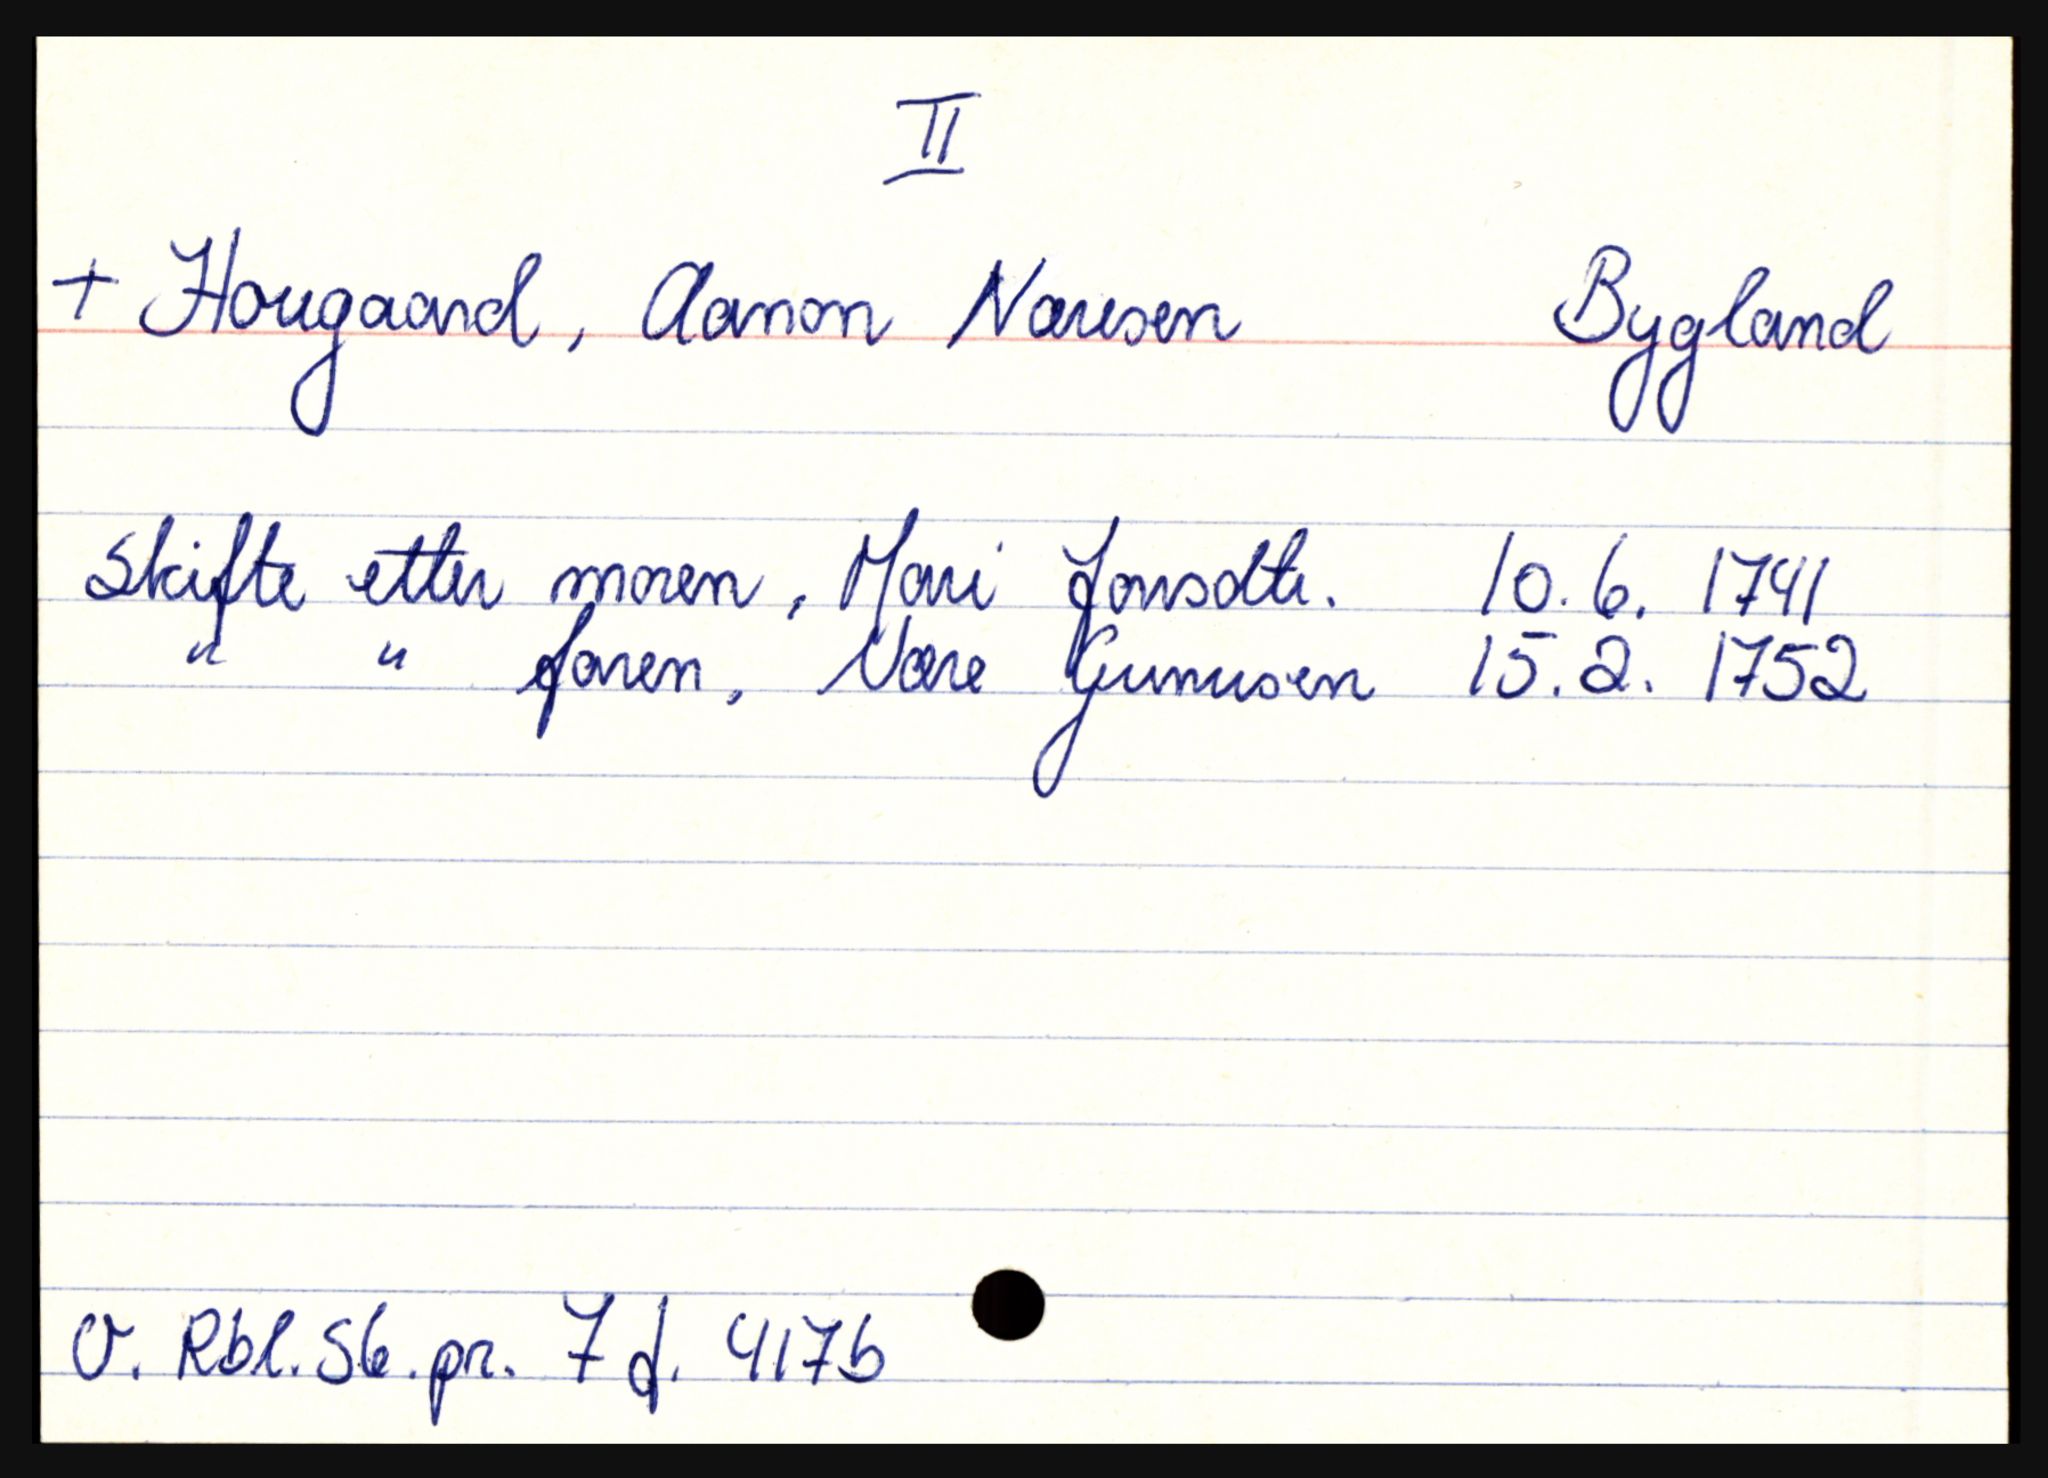 II
+ Hougaard, Aanon Næresen Bygland
Skifte etter moren, Mari Jonsdtr. 10. 6. 1741
" " faren, Nære Gunnusen 15. 2. 1752
O. Rbl. Sb. pr. 7 f. 417b